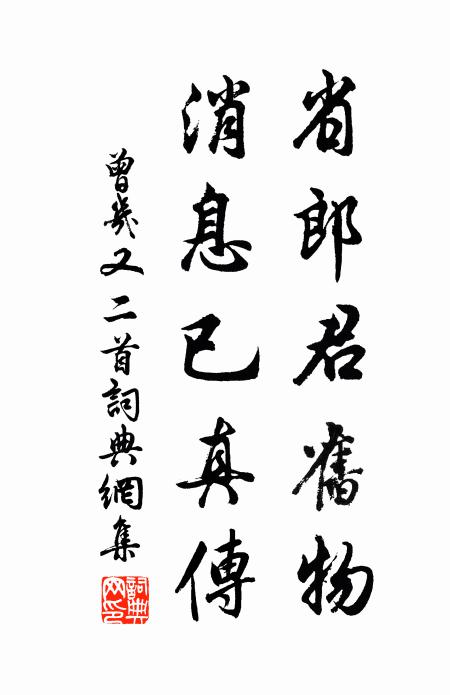 省郎君舊物
消息已真傳
曾幾又二首詞典網集
詞典網印